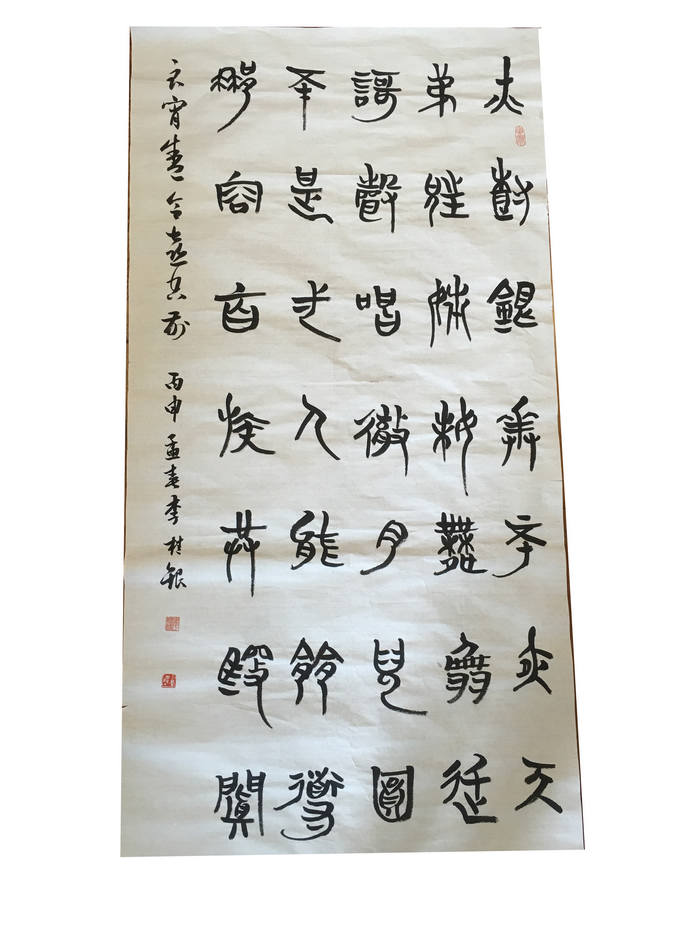 火樹銀華不夜天
弟兄姊妹舞翩躚
謌聲唱徹月兒圓
不是一人能領導
那容百族共駢闐
良宵盛會喜空前 丙申孟春李桂銀